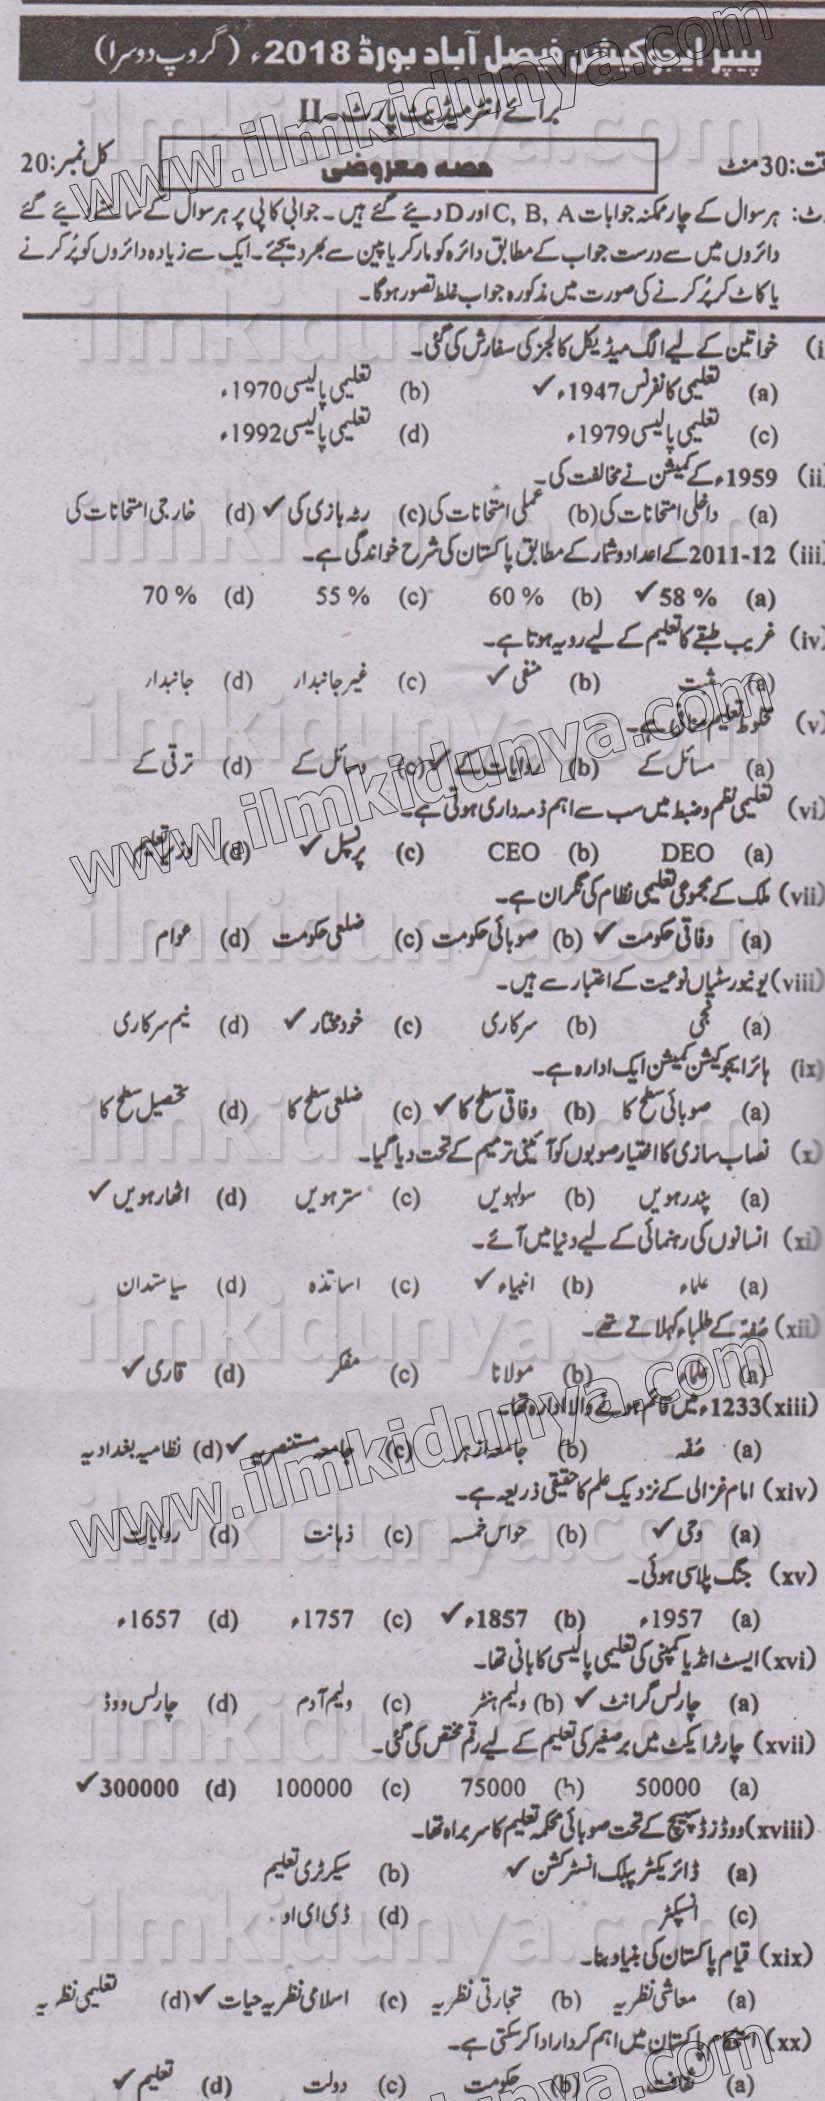 پیپر ایجوکیشن فیصل آباد بورڈ 2018ء (گروپ دوسرا)
برائے انٹرمیڈیٹ پارٹ ـ II
قت:30 منٹ حصہ معروضی کل نمبر:20
ٹ: ہر سوال کے چار ممکنہ جوابات C, B, A اور D دیئے گئے ہیں۔ جوابی کاپی پر ہر سوال کے سامنے دیئے گئے
دائروں میں سے درست جواب کے مطابق دائرہ کو مارکر یا پین سے بھر دیجئے۔ ایک سے زیادہ دائروں کو پُر کرنے
یا کاٹ کر پُر کرنے کی صورت میں مذکورہ جواب غلط تصور ہوگا۔
(i خواتین کے لیے الگ میڈیکل کالجز کی سفارش کی گئی۔
(a) تعلیمی کانفرنس 1947ء ✓ (b) تعلیمی پالیسی 1970ء
(c) تعلیمی پالیسی 1979ء (d) تعلیمی پالیسی 1992ء
(ii 1959ء کے کمیشن نے مخالفت کی۔
(a) داخلی امتحانات کی (b) عملی امتحانات کی (c) رٹہ بازی کی ✓ (d) خارجی امتحانات کی
(iii) 2011-12 کے اعداد و شمار کے مطابق پاکستان کی شرح خواندگی ہے۔
(a) 58 % ✓ (b) 60 % (c) 55 % (d) 70 %
(iv) غریب طبقے کا تعلیم کے لیے رویہ ہوتا ہے۔
(a) مثبت (b) منفی ✓ (c) غیر جانبدار (d) جانبدار
(v) مخلوط تعلیم منافی ہے۔
(a) مسائل کے (b) روایات کے ✓ (c) وسائل کے (d) ترقی کے
(vi) تعلیمی نظم و ضبط میں سب سے اہم ذمہ داری ہوتی ہے۔
(a) DEO (b) CEO (c) پرنسپل ✓ (d) وزیر تعلیم
(vii) ملک کے مجموعی تعلیمی نظام کی نگران ہے۔
(a) وفاقی حکومت ✓ (b) صوبائی حکومت (c) ضلعی حکومت (d) عوام
(viii) یونیورسٹیاں نوعیت کے اعتبار سے ہیں۔
(a) نجی (b) سرکاری (c) خود مختار ✓ (d) نیم سرکاری
(ix) ہائر ایجوکیشن کمیشن ایک ادارہ ہے۔
(a) صوبائی سطح کا (b) وفاقی سطح کا ✓ (c) ضلعی سطح کا (d) تحصیل سطح کا
(x) نصاب سازی کا اختیار صوبوں کو آئینی ترمیم کے تحت دیا گیا۔
(a) پندرھویں (b) سولہویں (c) سترھویں (d) اٹھارھویں ✓
(xi) انسانوں کی رہنمائی کے لیے دنیا میں آئے۔
(a) علماء (b) انبیاء ✓ (c) اساتذہ (d) سیاستدان
(xii) صُفّہ کے طلباء کہلاتے تھے۔
(a) علماء (b) مولانا (c) مفکر (d) قاری ✓
(xiii) 1233ء میں قائم ہونے والا ادارہ تھا۔
(a) صُفّہ (b) جامعہ ازہر (c) جامعہ مستنصریہ ✓ (d) نظامیہ بغدادیہ
(xiv) امام غزالی کے نزدیک علم کا حقیقی ذریعہ ہے۔
(a) وحی ✓ (b) حواس خمسہ (c) ذہانت (d) روایات
(xv) جنگ پلاسی ہوئی۔
(a) 1957ء (b) 1857ء ✓ (c) 1757ء (d) 1657ء
(xvi) ایسٹ انڈیا کمپنی کی تعلیمی پالیسی کا بانی تھا۔
(a) چارلس گرانٹ ✓ (b) ولیم ہنٹر (c) ولیم آدم (d) چارلس ووڈ
(xvii) چارٹر ایکٹ میں برصغیر کی تعلیم کے لیے رقم مختص کی گئی۔
(a) 50000 (b) 75000 (c) 100000 (d) 300000 ✓
(xviii) ووڈز ڈسپیچ کے تحت صوبائی محکمہ تعلیم کا سربراہ تھا۔
(a) ڈائریکٹر پبلک انسٹرکشن ✓ (b) سیکرٹری تعلیم
(c) انسپکٹر (d) ڈی ای او
(xix) قیام پاکستان کی بنیاد بنا۔
(a) معاشی نظریہ (b) تجارتی نظریہ (c) اسلامی نظریہ حیات ✓ (d) تعلیمی نظریہ
(xx) استحکام پاکستان میں اہم کردار ادا کر سکتی ہے۔
(a) ثقافت (b) حکومت (c) دولت (d) تعلیم ✓
www.ilmkidunya.com